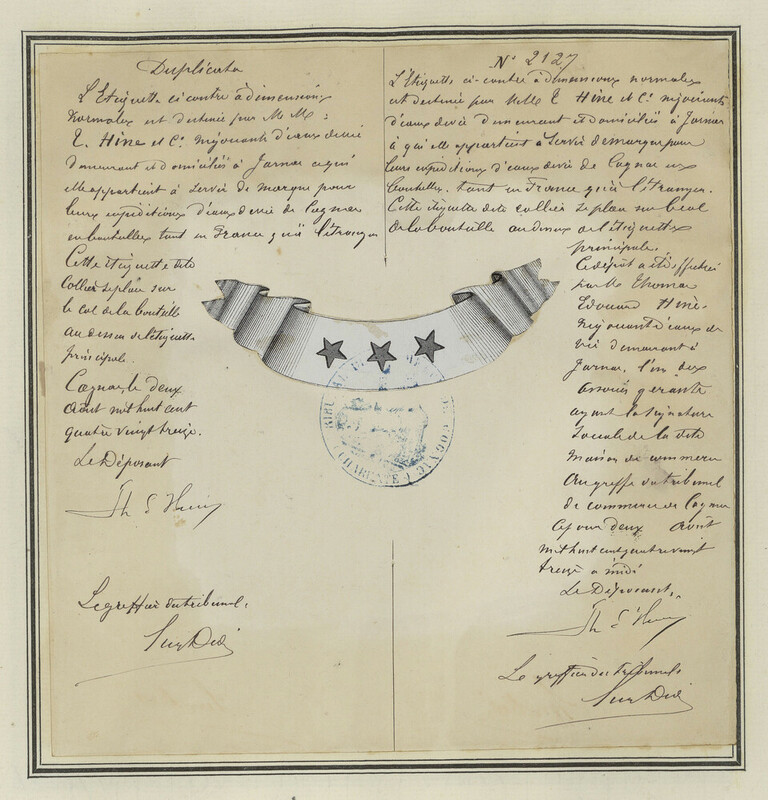 Duplicata
L'Etiquette ci contre à dimensions
normales est destinée par M M :
T. Hine et Cie Négociants d'eaux de vie
demeurant et domiciliés à Jarnac a qui
elle appartient à servir de marque pour
leurs expéditions d'eaux de vie de Cognac
en bouteilles tant en France qu'à l'étranger
Cette étiquette dite
Collier se place sur
le col de la bouteille
au dessus de l'étiquette
principale.
Cognac, le deux
Août mil huit cent
quatre vingt treize.
Le Déposant
Th E Hine
Le greffier du tribunal.
N° 2127
L'Etiquette ci-contre à dimensions normales
est destinée par MM T. Hine et Cie négociants
d'eaux de vie demeurant et domiciliés à Jarnac
à qui elle appartient à servir de marque pour
leurs expéditions d'eaux de vie de Cognac en
bouteilles, tant en France qu'à l'étranger.
Cette étiquette dite collier se place sur le col
de la bouteille au dessus de l'étiquette
principale.
Ce dépôt a été effectué
par M. Thomas
Edouard Hine.
Négociant d'eaux de
vie demeurant à
Jarnac, l'un des
associés gérants
ayant la signature
sociale de la dite
maison de commerce
au greffe du tribunal
de commerce de Cognac
ce jour deux Août
mil huit cent quatre vingt
treize a midi
Le Déposant,
Th E Hine
Le greffier du tribunal
TRIBUNAL DE COMMERCE DE COGNAC
(CHARENTE)